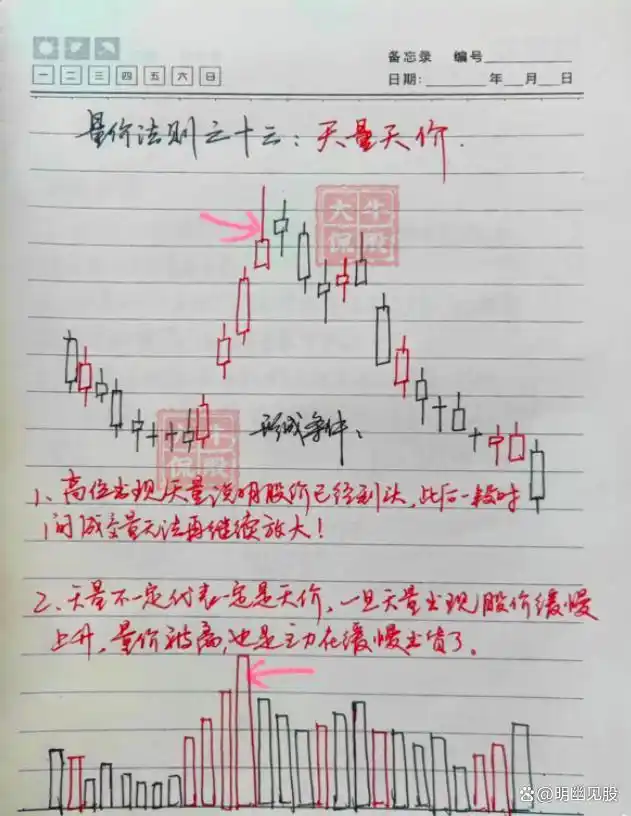 备忘录 编号
一 二 三 四 五 六 日
日期: 年 月 日
量价法则之十三：天量天价.
大牛
侃股
大牛
侃股
形成条件、
1、高位出现天量说明股价已经到头,此后一段时
间成交量无法再继续放大!
2、天量不一定代表一定是天价,一旦天量出现股价缓慢
上升,量价背离,也是主力在缓慢出货了。
@明幽见股